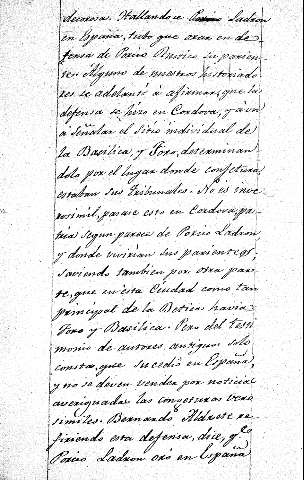 decorosa. Hallandose Ladron
en España, tubo que orar en de
fensa de Porcio Rustico su parien-
te. Alguno de nuestros historiado
res se adelantó a afirmar, que la
defensa se hizo en Cordova, y aun
a señalar el sitio individual de
la Basilica, y Foro, determinan
dolo por el lugar donde
estaban sus Tribunales. No es inve
rosimil, pasase esto en Cordova, pa-
tria segun parece de Porcio Ladron
y donde vivirian sus parientes,
saviendo tambien por otra par-
te, que en esta Ciudad como tan
principal de la Betica havia
Foro y Basilica. Pero del testi
monio de autores antiguos solo
consta, que sucedió en España,
y no se deven vender por noticias
averiguadas las congeturas vero
similes. Bernardo Aldrete re
firiendo esta defensa, dice, q.e
Porcio Ladron oró en España